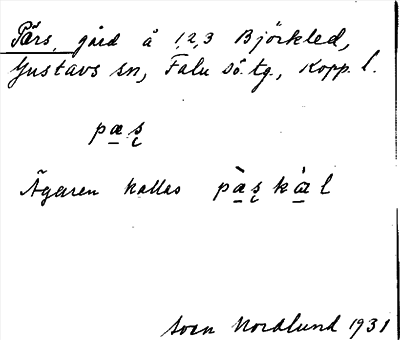 Pärs, gård å 1,2,3 Björkled,
Gustavs sn, Falu sö. tg., Kopp. l.
pæ̱ʂ
Ägaren kallas pæ̱̀ʂkæ̱̀l
Sven Nordlund 1931